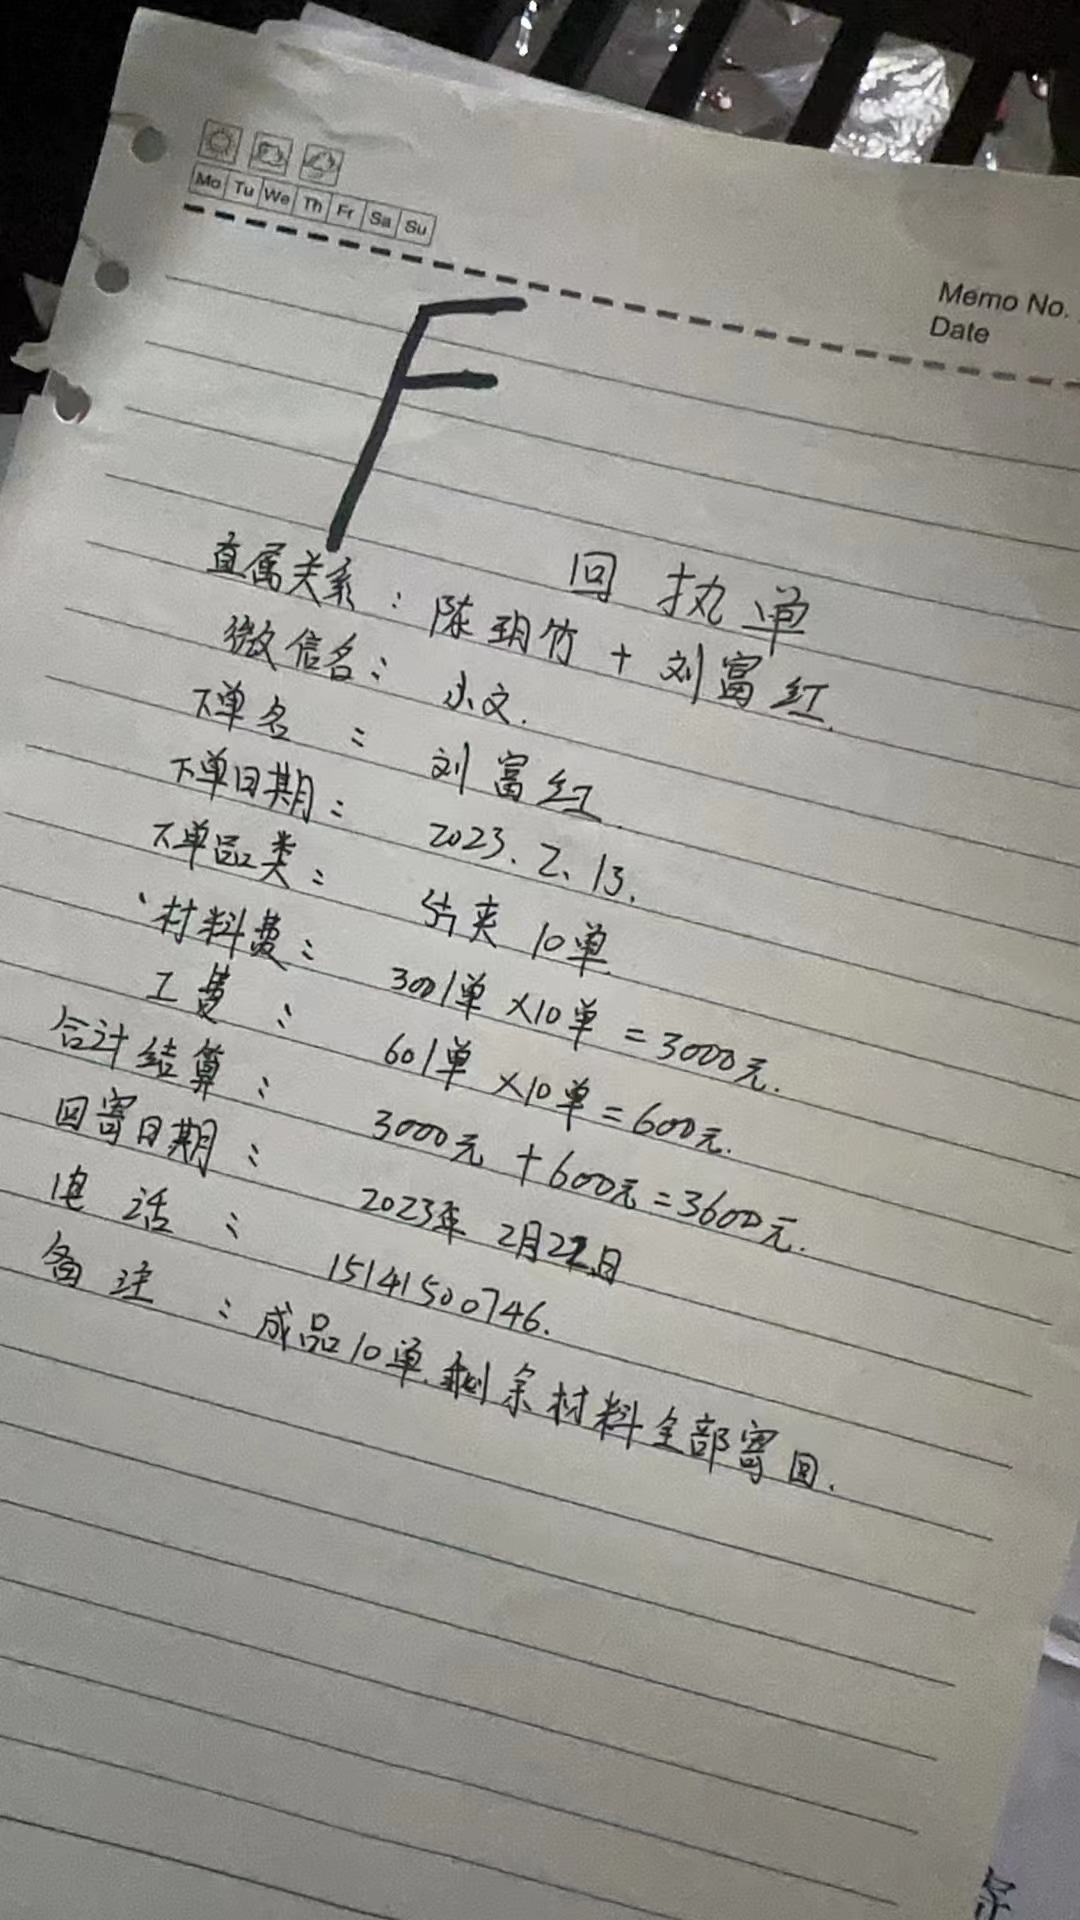 Mo Tu We Th Fr Sa Su
Memo No.
Date
F
回执单
直属关系：陈玥竹+刘富红.
微信名：小文.
下单名：刘富红.
下单日期：2023.2.13.
下单品类：夹 10单
材料费：300/单×10单=3000元.
工费：60/单×10单=600元.
合计结算：3000元+600元=3600元.
回寄日期：2023年2月22日
电话：15141500746.
备注：成品10单.剩余材料全部寄回.